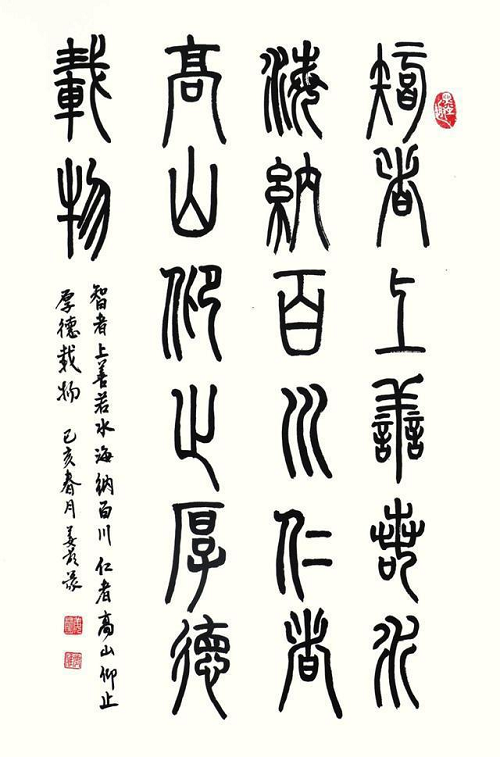 智者上善若水
海納百川仁者
高山仰止厚德
載物
智者上善若水海納百川仁者高山仰止
厚德載物 己亥春月姜篆